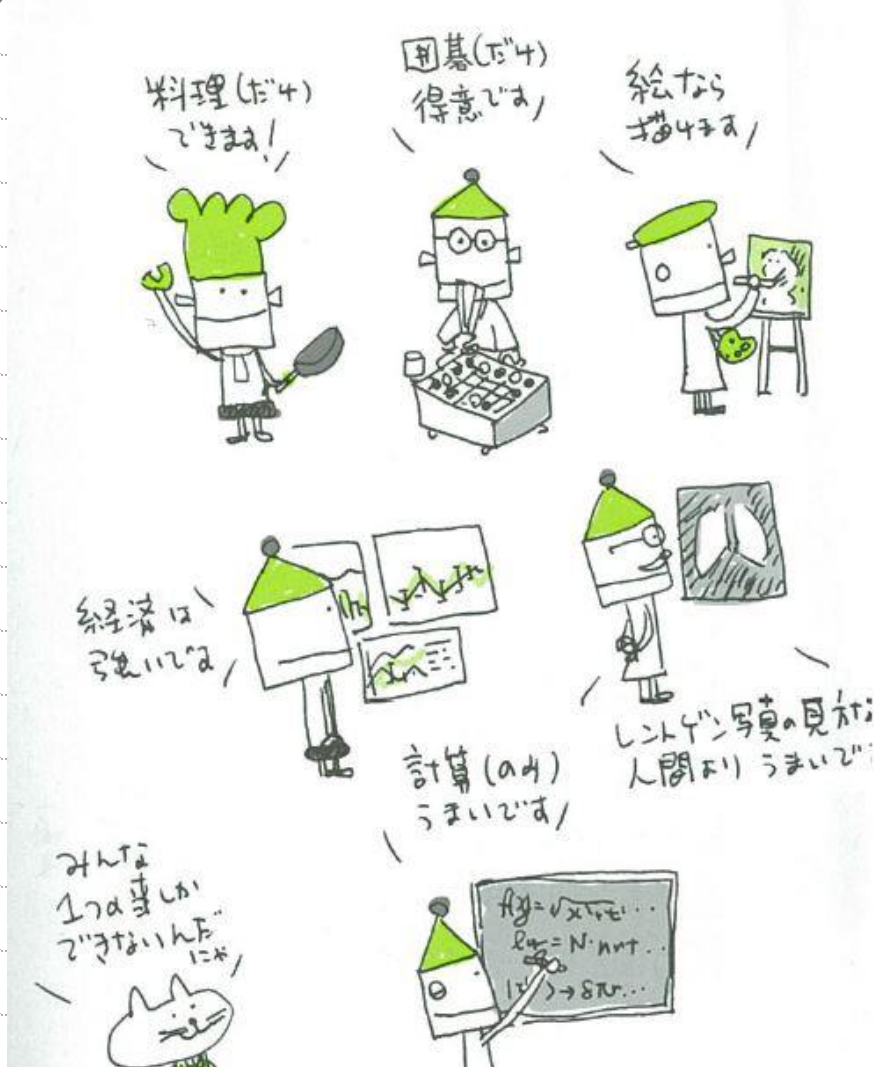 料理(だけ)
できます!
囲碁(だけ)
得意です
絵なら
描けます
経済は
強いです
レントゲン写真の見方な
人間より うまいで
計算(のみ)
うまいです
みんな
1つの事しか
できないんだ
にゃ